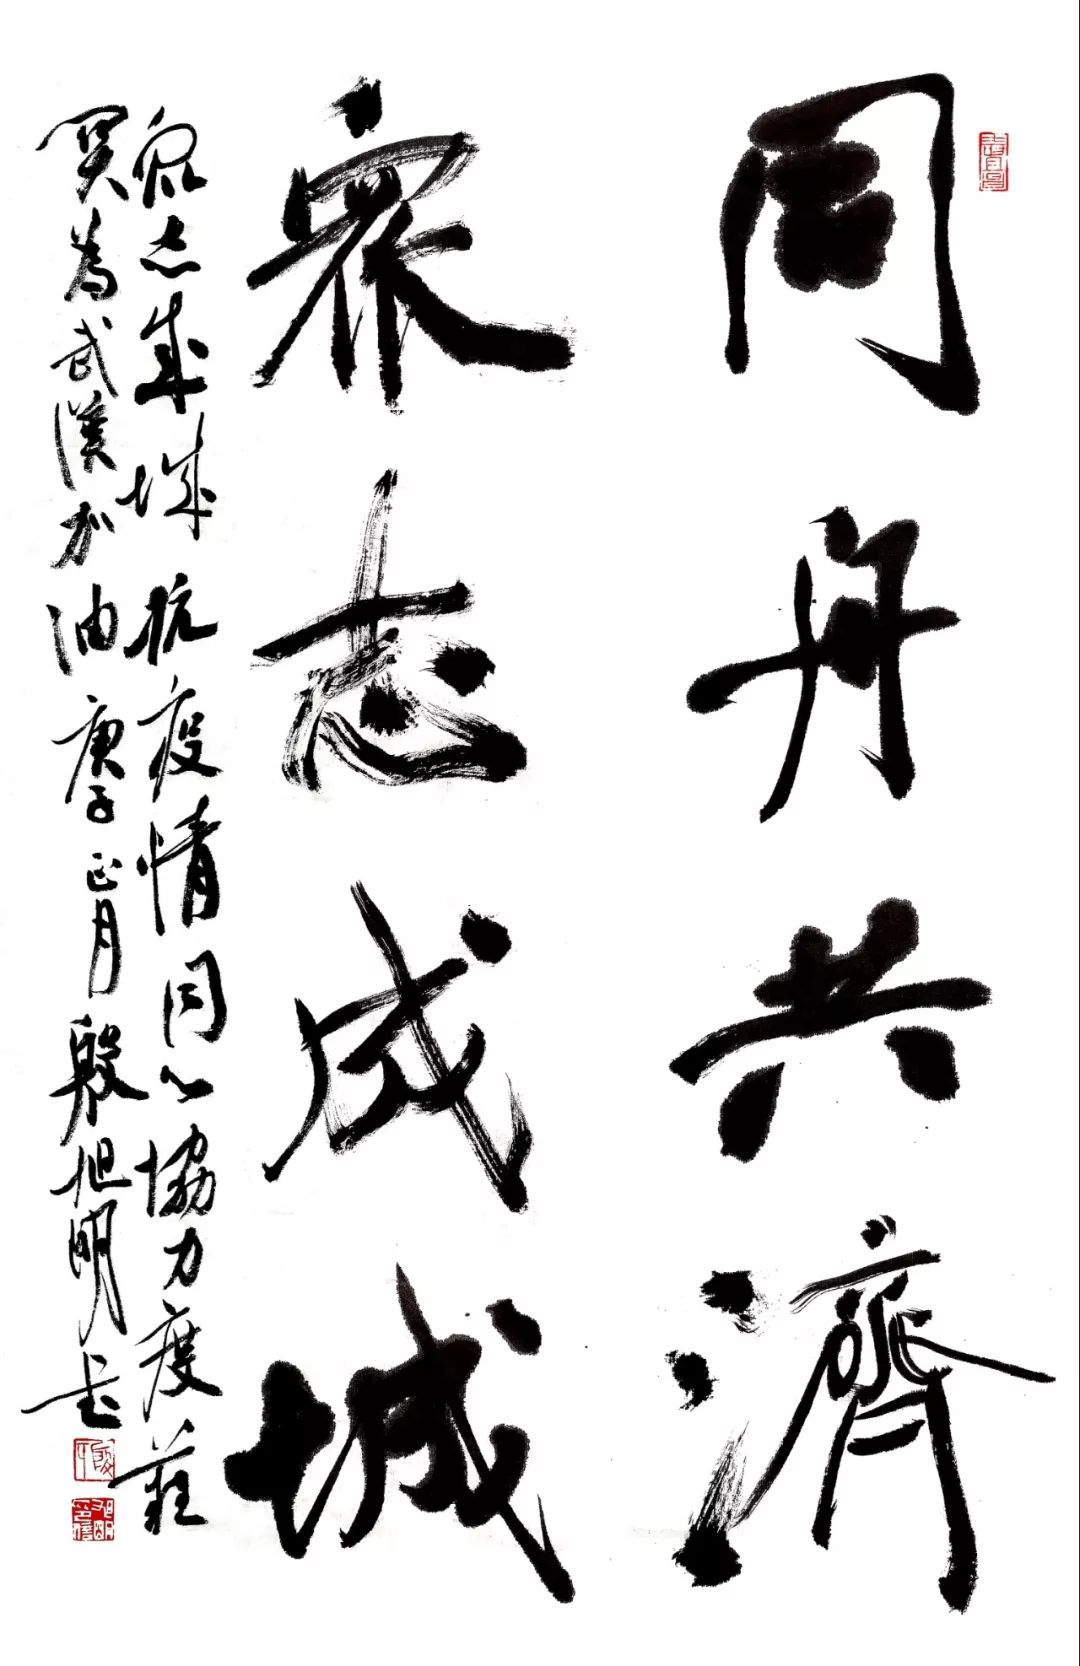 同舟共濟
衆志成城
衆志成城抗疫情同心協力度難
関為武漢加油庚子正月殷旭明书